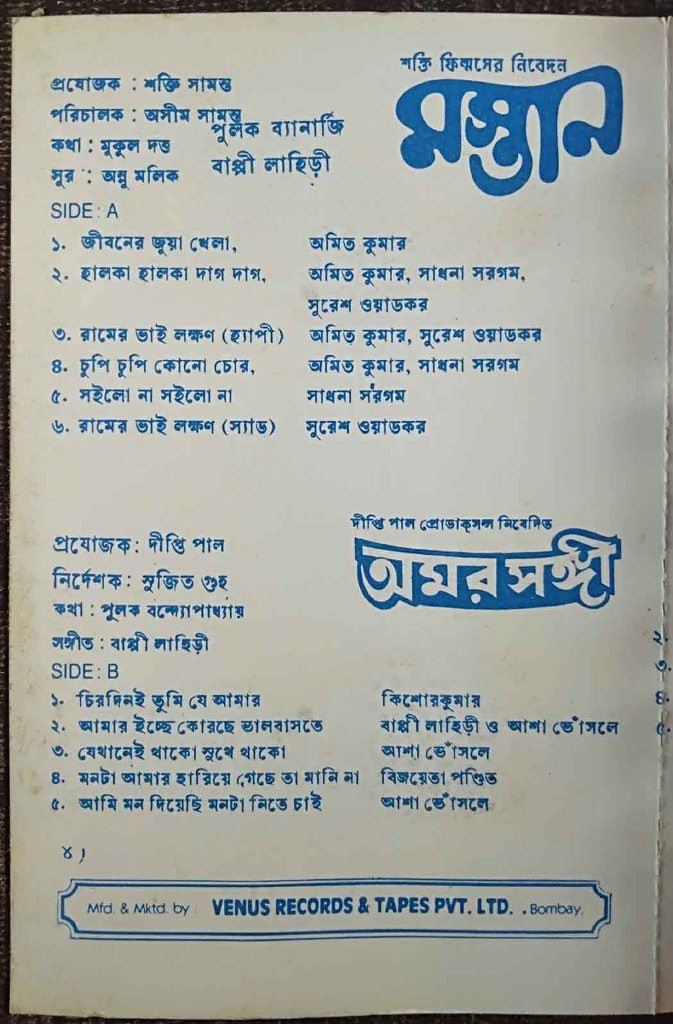 শক্তি ফিল্মসের নিবেদন
মস্তান
প্রযোজক : শক্তি সামন্ত
পরিচালক : অসীম সামন্ত
পুলক ব্যানার্জি
কথা : মুকুল দত্ত
বাপ্পী লাহিড়ী
সুর : অন্নু মলিক
SIDE : A
১. জীবনের জুয়া খেলা, অমিত কুমার
২. হালকা হালকা দাগ দাগ, অমিত কুমার, সাধনা সরগম,
সুরেশ ওয়াডকর
৩. রামের ভাই লক্ষণ (হ্যাপী) অমিত কুমার, সুরেশ ওয়াডকর
৪. চুপি চুপি কোনো চোর, অমিত কুমার, সাধনা সরগম
৫. সইলো না সইলো না সাধনা সরগম
৬. রামের ভাই লক্ষণ (স্যাড) সুরেশ ওয়াডকর
দীপ্তি পাল প্রোডাক্সন্স নিবেদিত
অমর সঙ্গী
প্রযোজক : দীপ্তি পাল
নির্দেশক : সুজিত গুহ
কথা : পুলক বন্দ্যোপাধ্যায়
সঙ্গীত : বাপ্পী লাহিড়ী
SIDE : B
১. চিরদিনই তুমি যে আমার কিশোরকুমার
২. আমার ইচ্ছে কোরছে ভালবাসতে বাপ্পী লাহিড়ী ও আশা ভোঁসলে
৩. যেখানেই থাকো সুখে থাকো আশা ভোঁসলে
৪. মনটা আমার হারিয়ে গেছে তা মানি না বিজয়েতা পণ্ডিত
৫. আমি মন দিয়েছি মনটা নিতে চাই আশা ভোঁসলে
৪)
Mfd. & Mktd. by : VENUS RECORDS & TAPES PVT. LTD. . Bombay.
২.
৩.
৪.
৫.